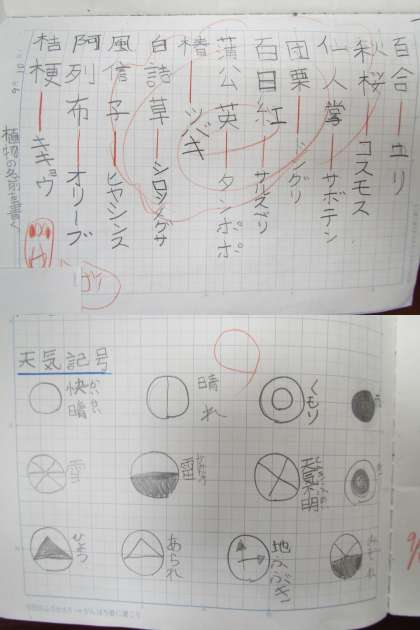 百合―ユリ
秋桜―コスモス
仙人掌―サボテン
団栗―ドングリ
百日紅―サルスベリ
蒲公英―タンポポ
椿―ツバキ
白詰草―シロツメグサ
風信子―ヒヤシンス
阿列布―オリーブ
桔梗―キキョウ
植物の名前を書く
天気記号
快晴
晴れ
くもり
雪
雷
天気不明
ひょう
あられ
地ふぶき
みぞれ